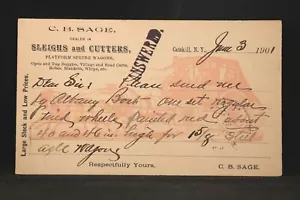 C. B. SAGE,
DEALER IN
SLEIGHS and CUTTERS,
PLATFORM SPRING WAGONS,
Open and Top Buggies, Village and Road Carts,
Robes, Blankets, Whips, etc.
ANSWERED
Catskill, N. Y., June 3 1901
Large Stock and Low Prices.
Dear Sir; Please send me
by Albany Boat one set
wheels painted red about
and high for
Wagon
Respectfully Yours, C. B. SAGE.